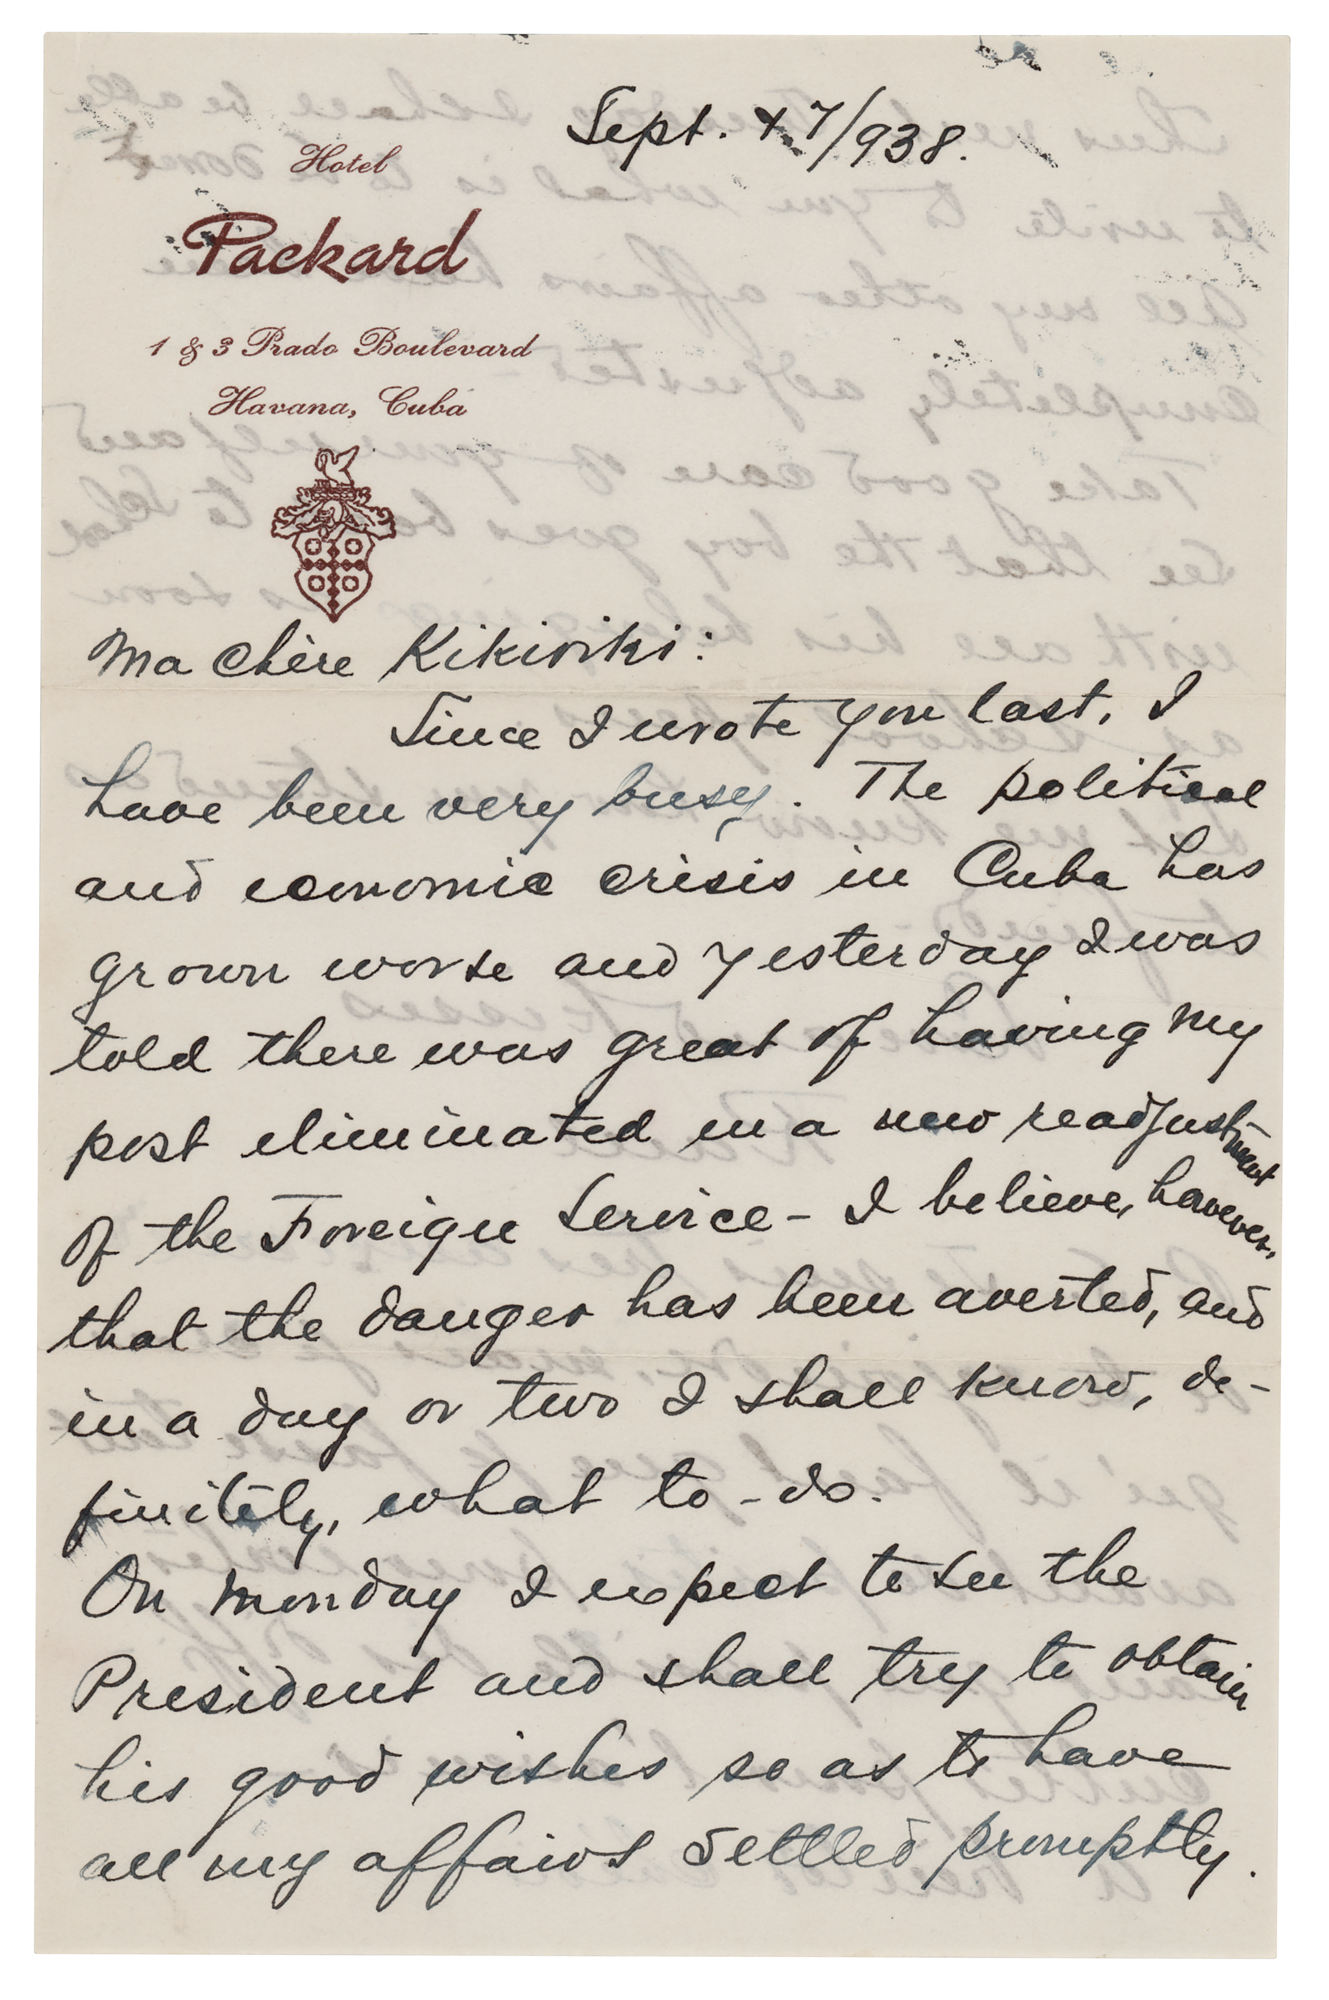 Sept. 7/938.
Hotel
Packard
1 & 3 Prado Boulevard
Havana, Cuba
Ma chère Kikiriki:
Since I wrote you last, I
have been very busy. The political
and economic crisis in Cuba has
grown worse and yesterday I was
told there was great of having my
post eliminated in a new readjustment
of the Foreign Service - I believe, however,
that the danger has been averted, and
in a day or two I shall know, de-
finitely, what to-do.
On Monday I expect to see the
President and shall try to obtain
his good wishes so as to have
all my affairs settled promptly.